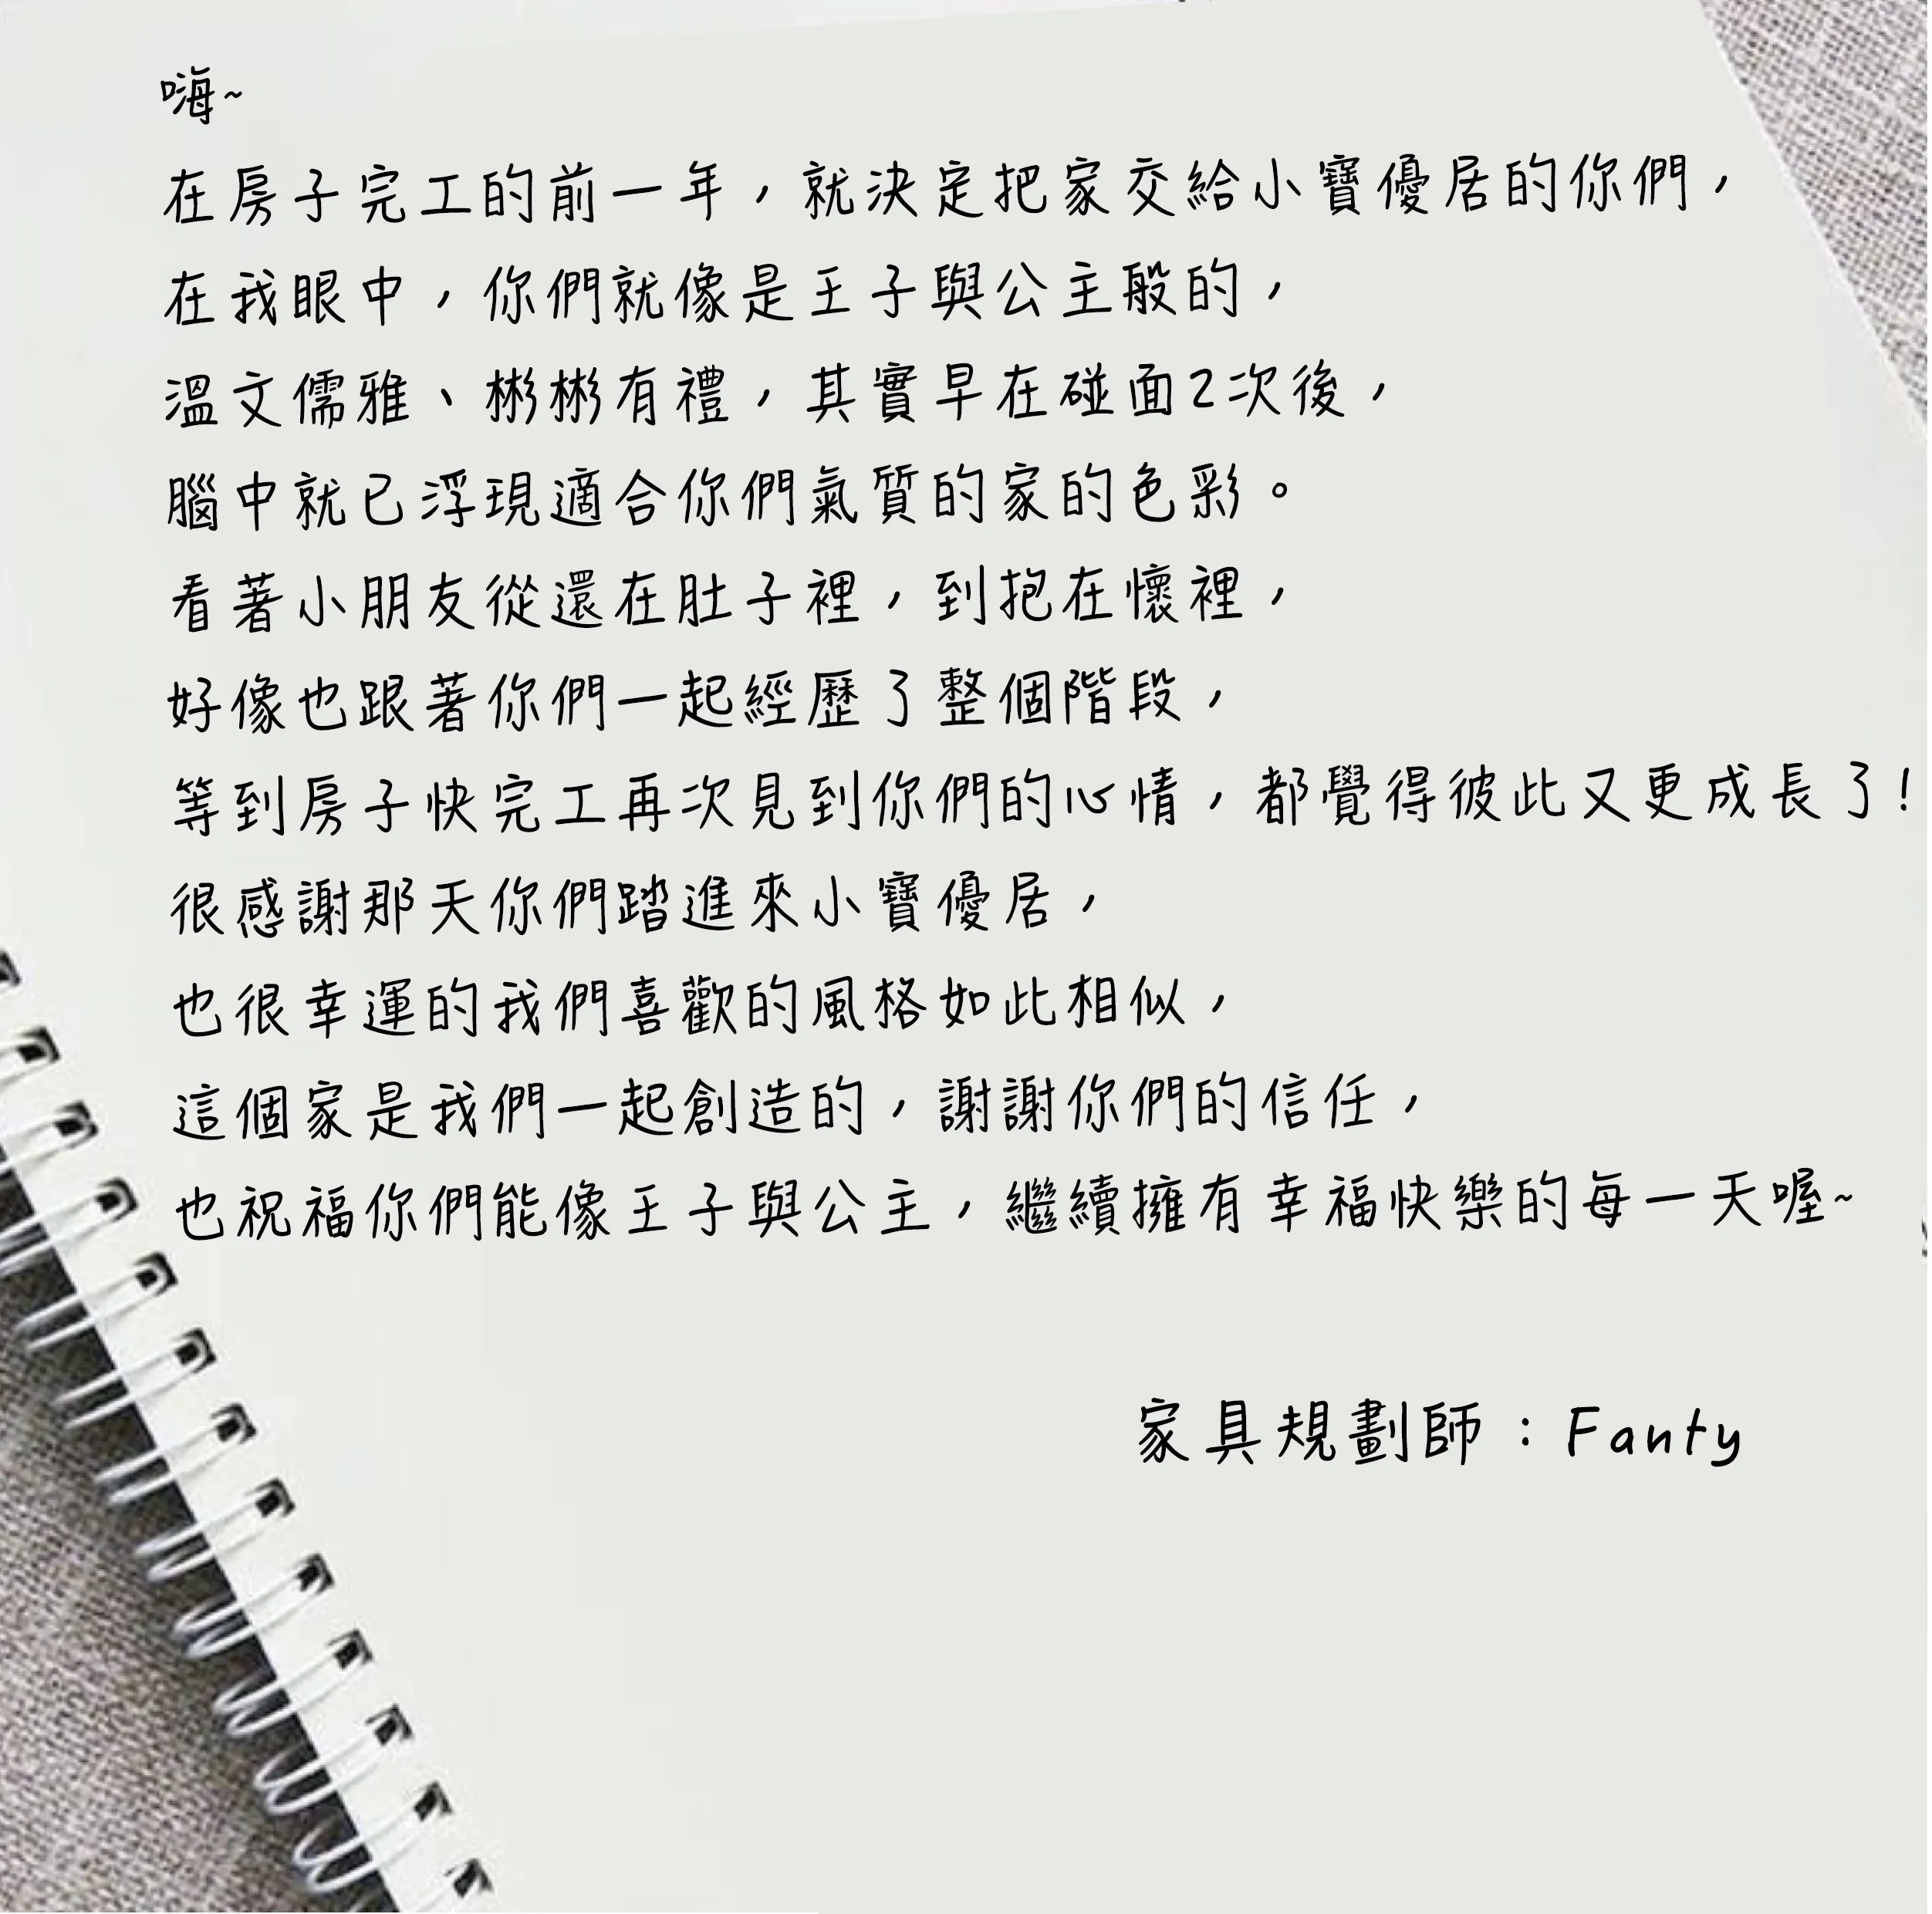 嗨~
在房子完工的前一年，就決定把家交給小寶優居的你們，
在我眼中，你們就像是王子與公主般的，
溫文儒雅、彬彬有禮，其實早在碰面2次後，
腦中就已浮現適合你們氣質的家的色彩。
看著小朋友從還在肚子裡，到抱在懷裡，
好像也跟著你們一起經歷了整個階段，
等到房子快完工再次見到你們的心情，都覺得彼此又更成長了!
很感謝那天你們踏進來小寶優居，
也很幸運的我們喜歡的風格如此相似，
這個家是我們一起創造的，謝謝你們的信任，
也祝福你們能像王子與公主，繼續擁有幸福快樂的每一天喔~
家具規劃師：Fanty